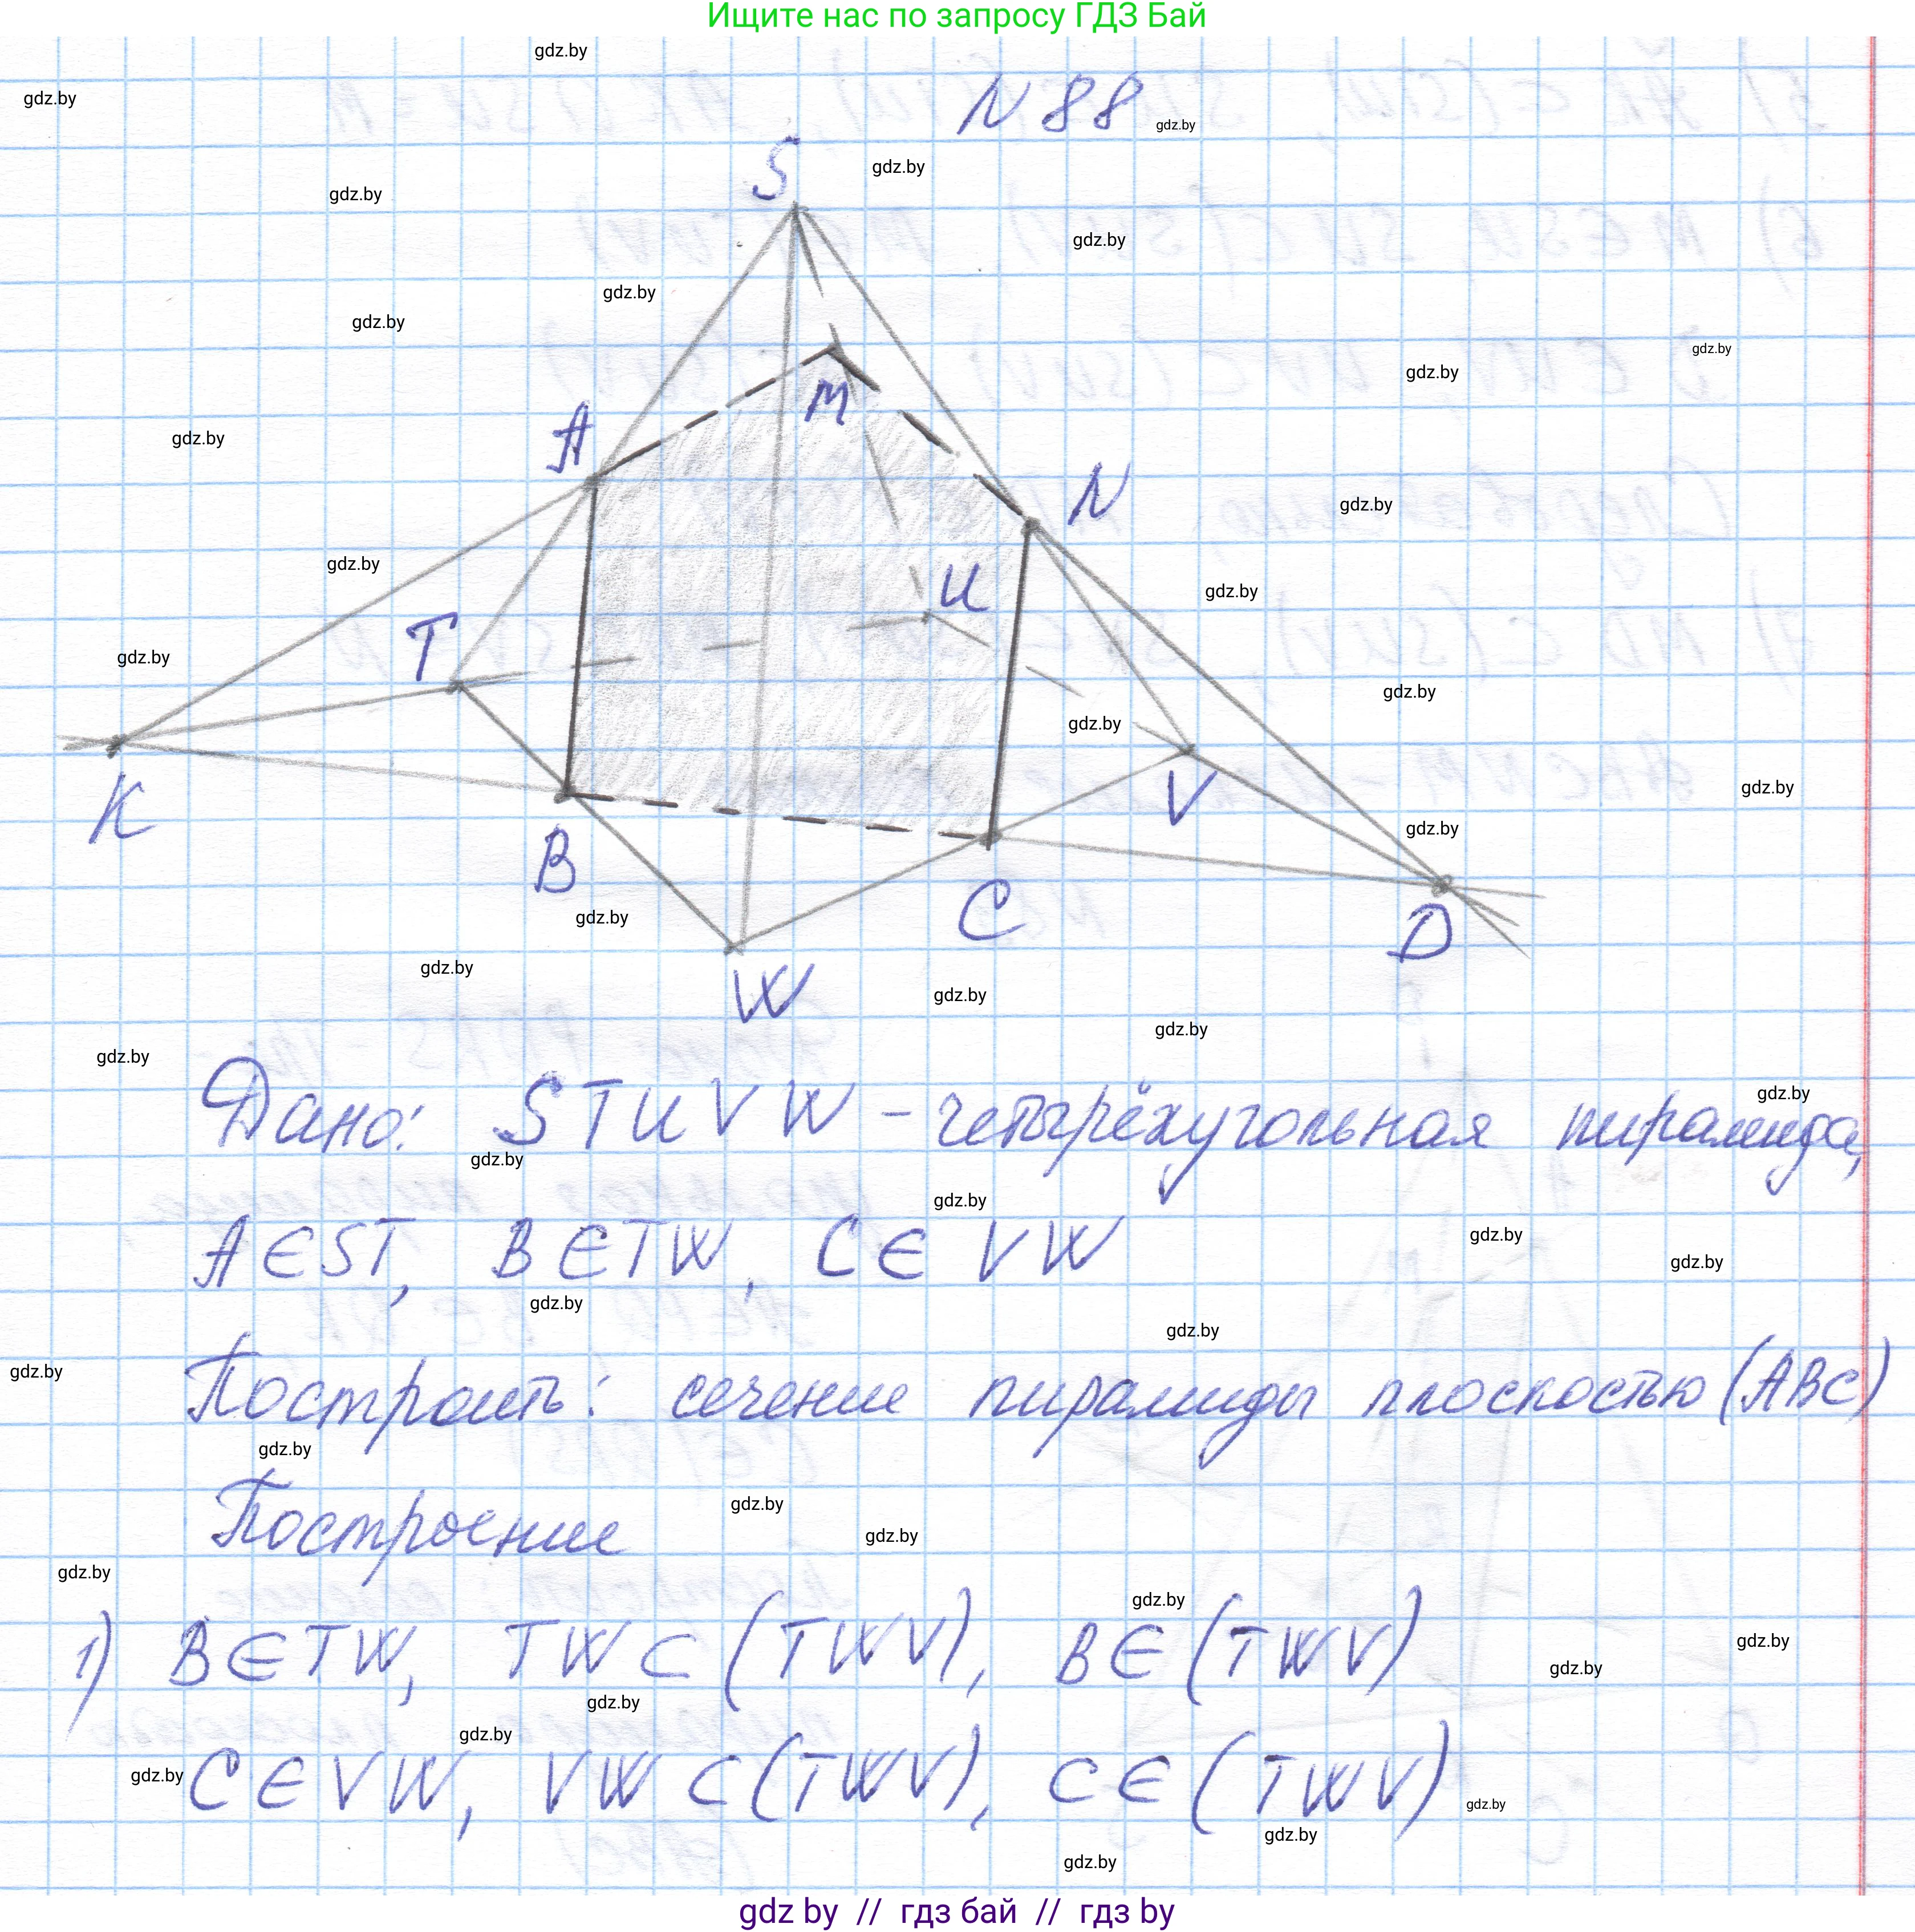 Ищите нас по запросу ГДЗ Бай
N 88
S
A
M
N
T
U
K
V
B
C
D
W
Дано: STUVW - четырёхугольная пирамида,
A∈ST, B∈TW, C∈VW
Построить: сечение пирамиды плоскостью (ABC)
Построение
1) B∈TW, TW⊂(TWV), B∈(TWV)
C∈VW, VW⊂(TWV), C∈(TWV)
gdz by // гдз бай // гдз by